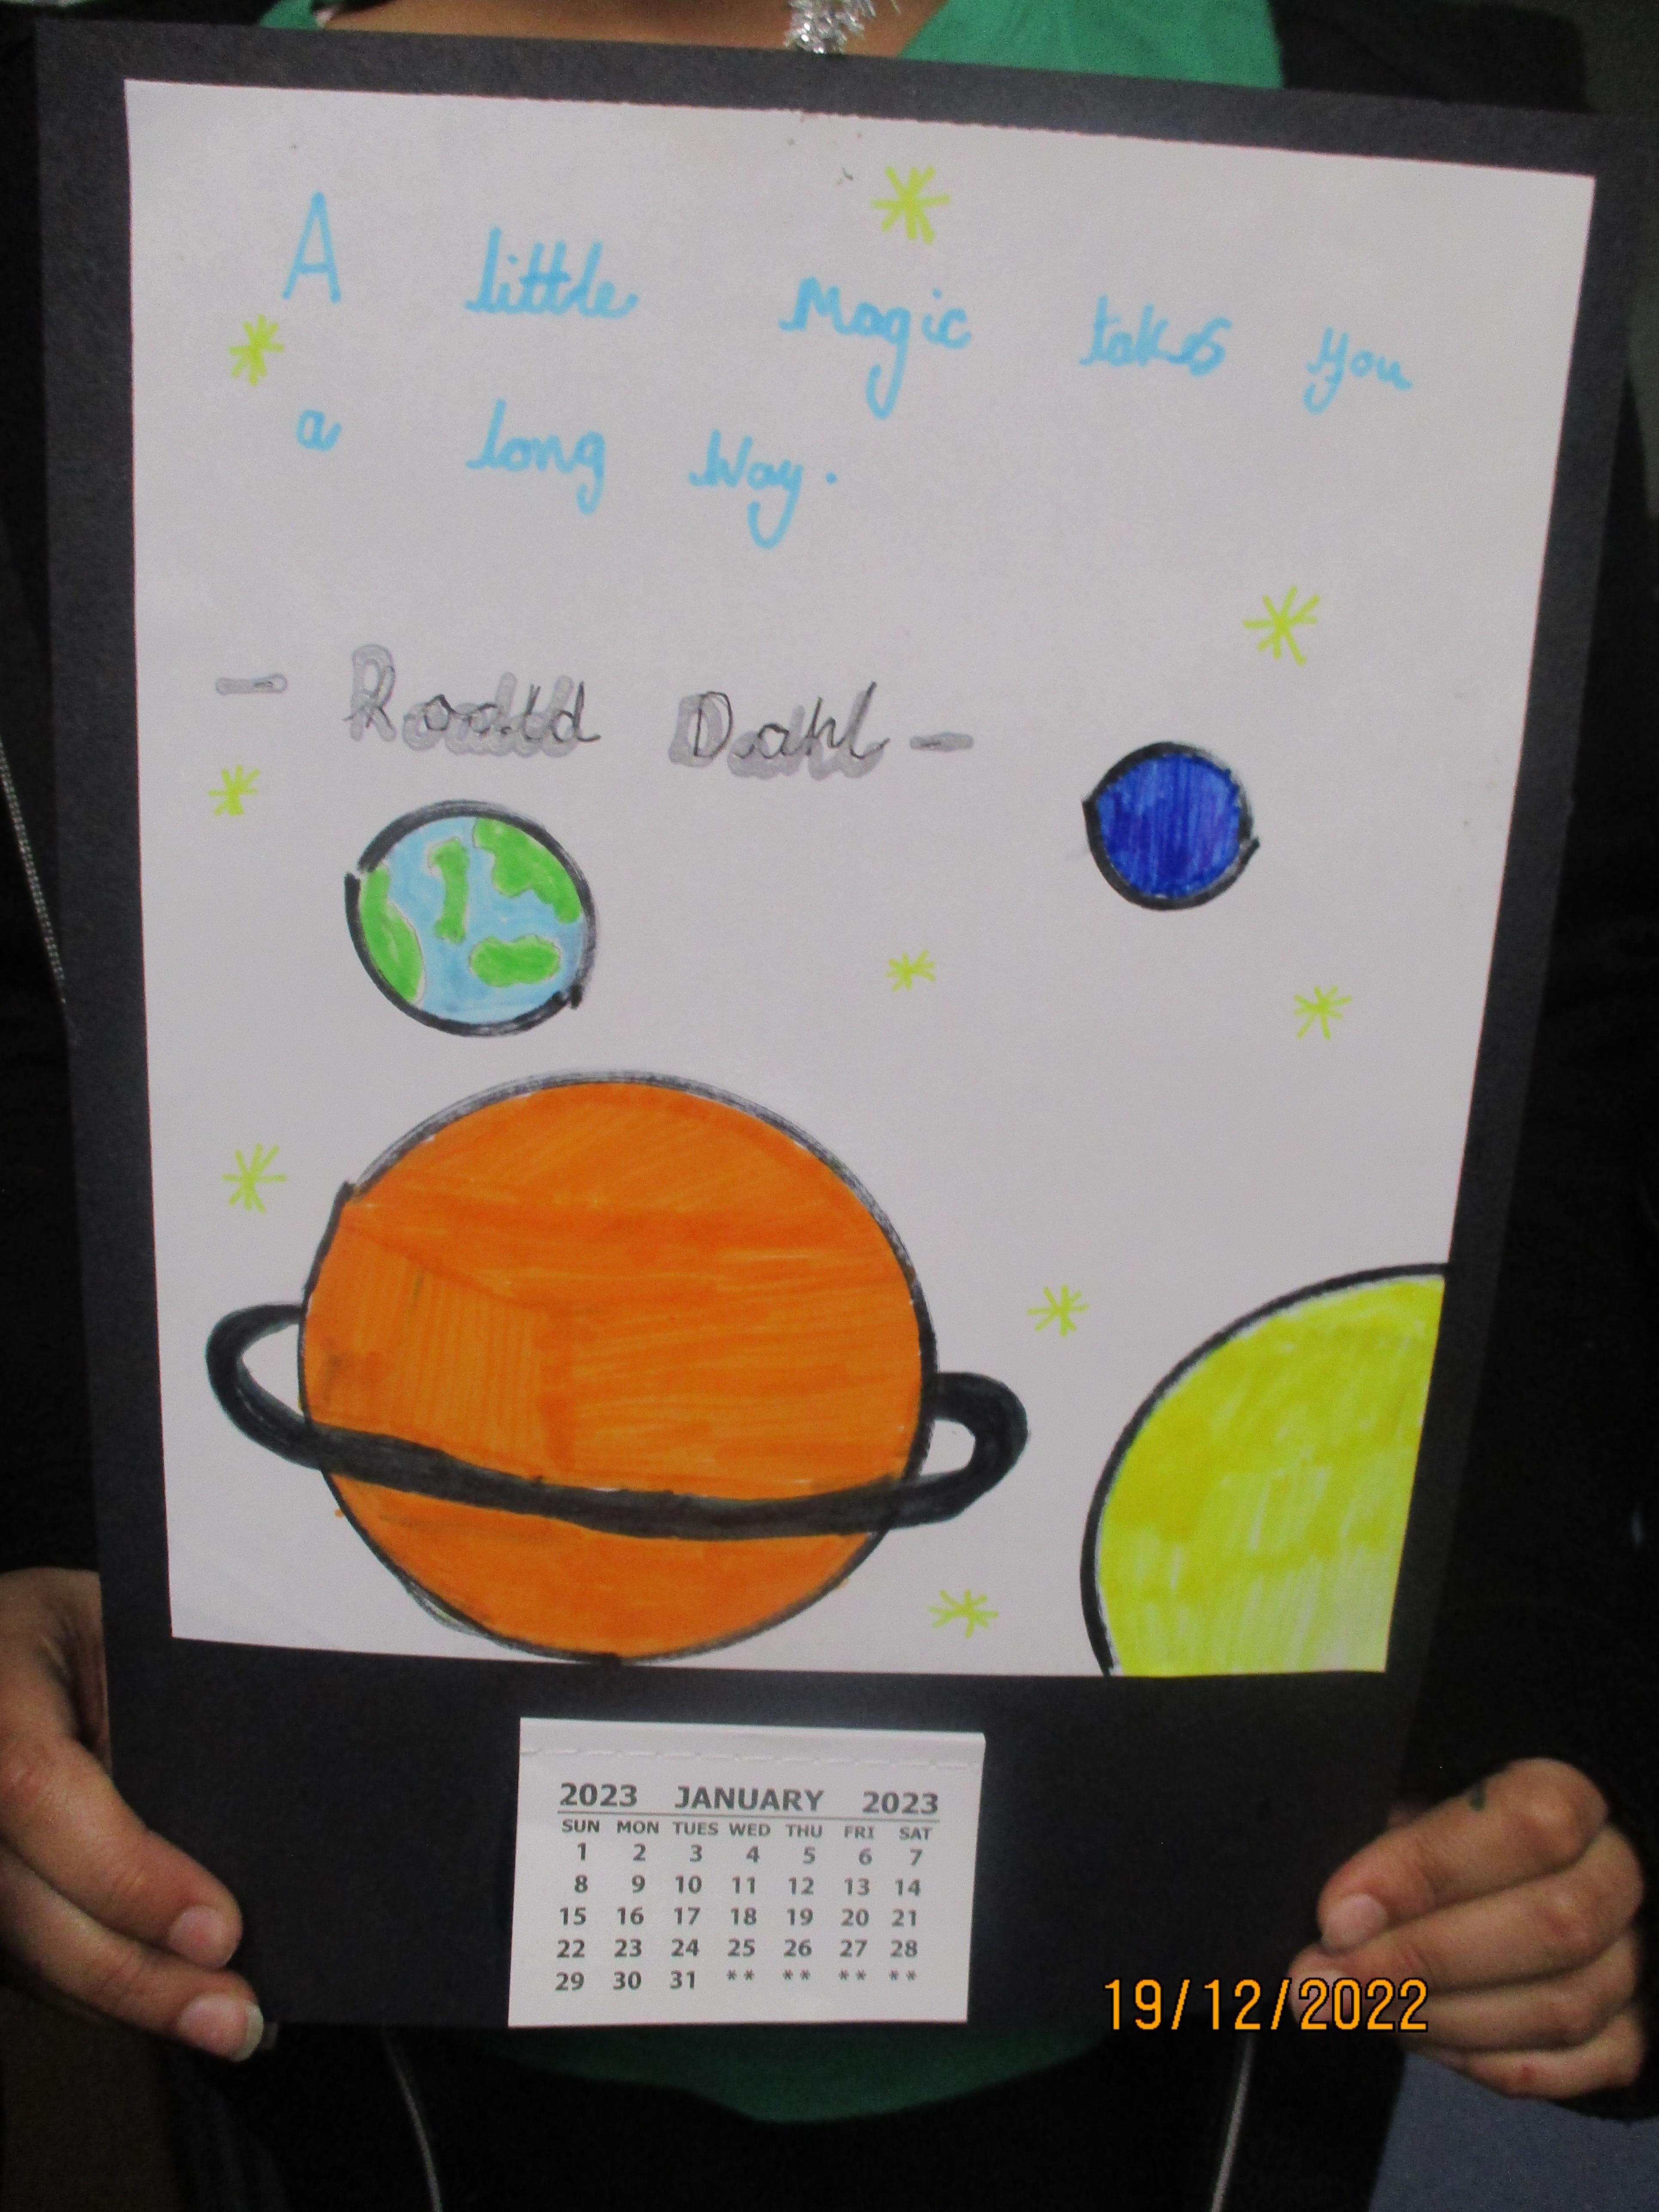 A little Magic takes you
a long Way.
- Roald Dahl -
2023 JANUARY 2023
SUN MON TUES WED THU FRI SAT
1 2 3 4 5 6 7
8 9 10 11 12 13 14
15 16 17 18 19 20 21
22 23 24 25 26 27 28
29 30 31 ** ** ** **
19/12/2022